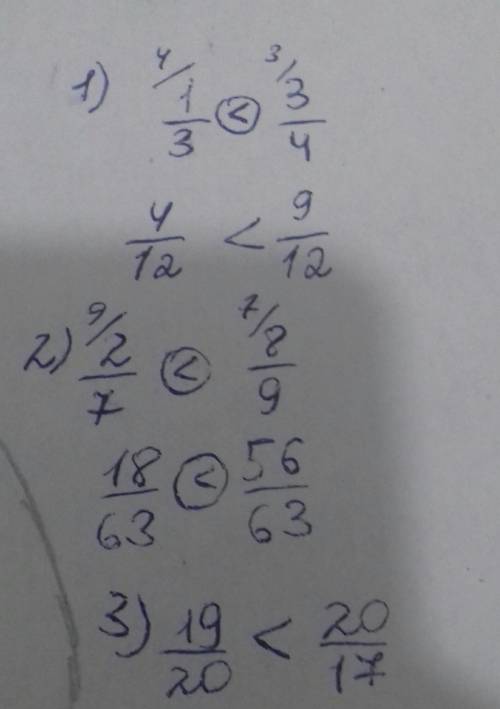 1) ⁴/1/3 < ³/3/4
4/12 < 9/12
2) ⁹/2/7 < ⁷/8/9
18/63 < 56/63
3) 19/20 < 20/17